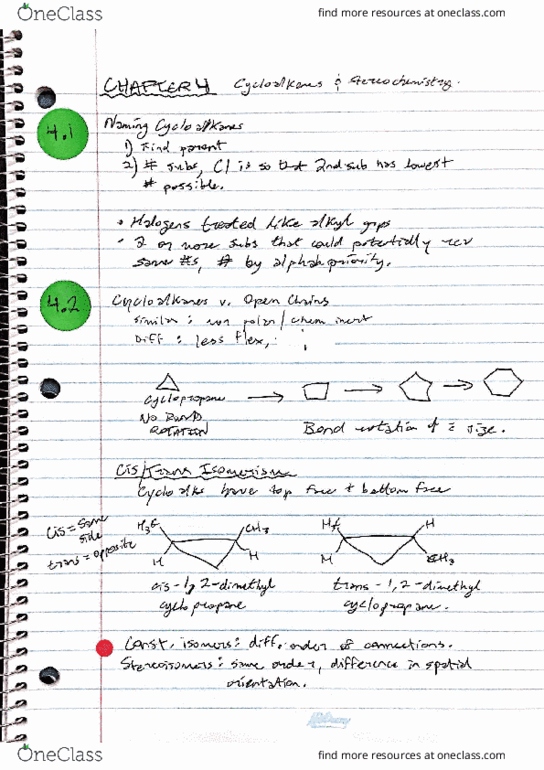 OneClass
find more resources at oneclass.com
CHAPTER 4 Cycloalkanes & Stereochemistry.
4.1
Naming Cycloalkanes
1) Find parent
2) # subs, C1 is so that 2nd sub has lowest
# possible.
• Halogens treated like alkyl grps
• 2 or more subs that could potentially rcv
same #s, # by alphab priority.
4.2
Cycloalkanes v. Open Chains
Similar: non polar/chem inert
Diff: less flex,
cyclopropane
NO BOND
ROTATION
Bond rotation ↑ c̄ size.
Cis/Trans Isomerism
Cycloalks have top face + bottom face
cis = same
side
trans = opposite
H3C CH3
H H
H3C H
H CH3
cis-1,2-dimethyl
cyclopropane
trans-1,2-dimethyl
cyclopropane.
Const. isomers: diff. order of connections.
Stereoisomers: same order, difference in spatial
orientation.
OneClass
find more resources at oneclass.com